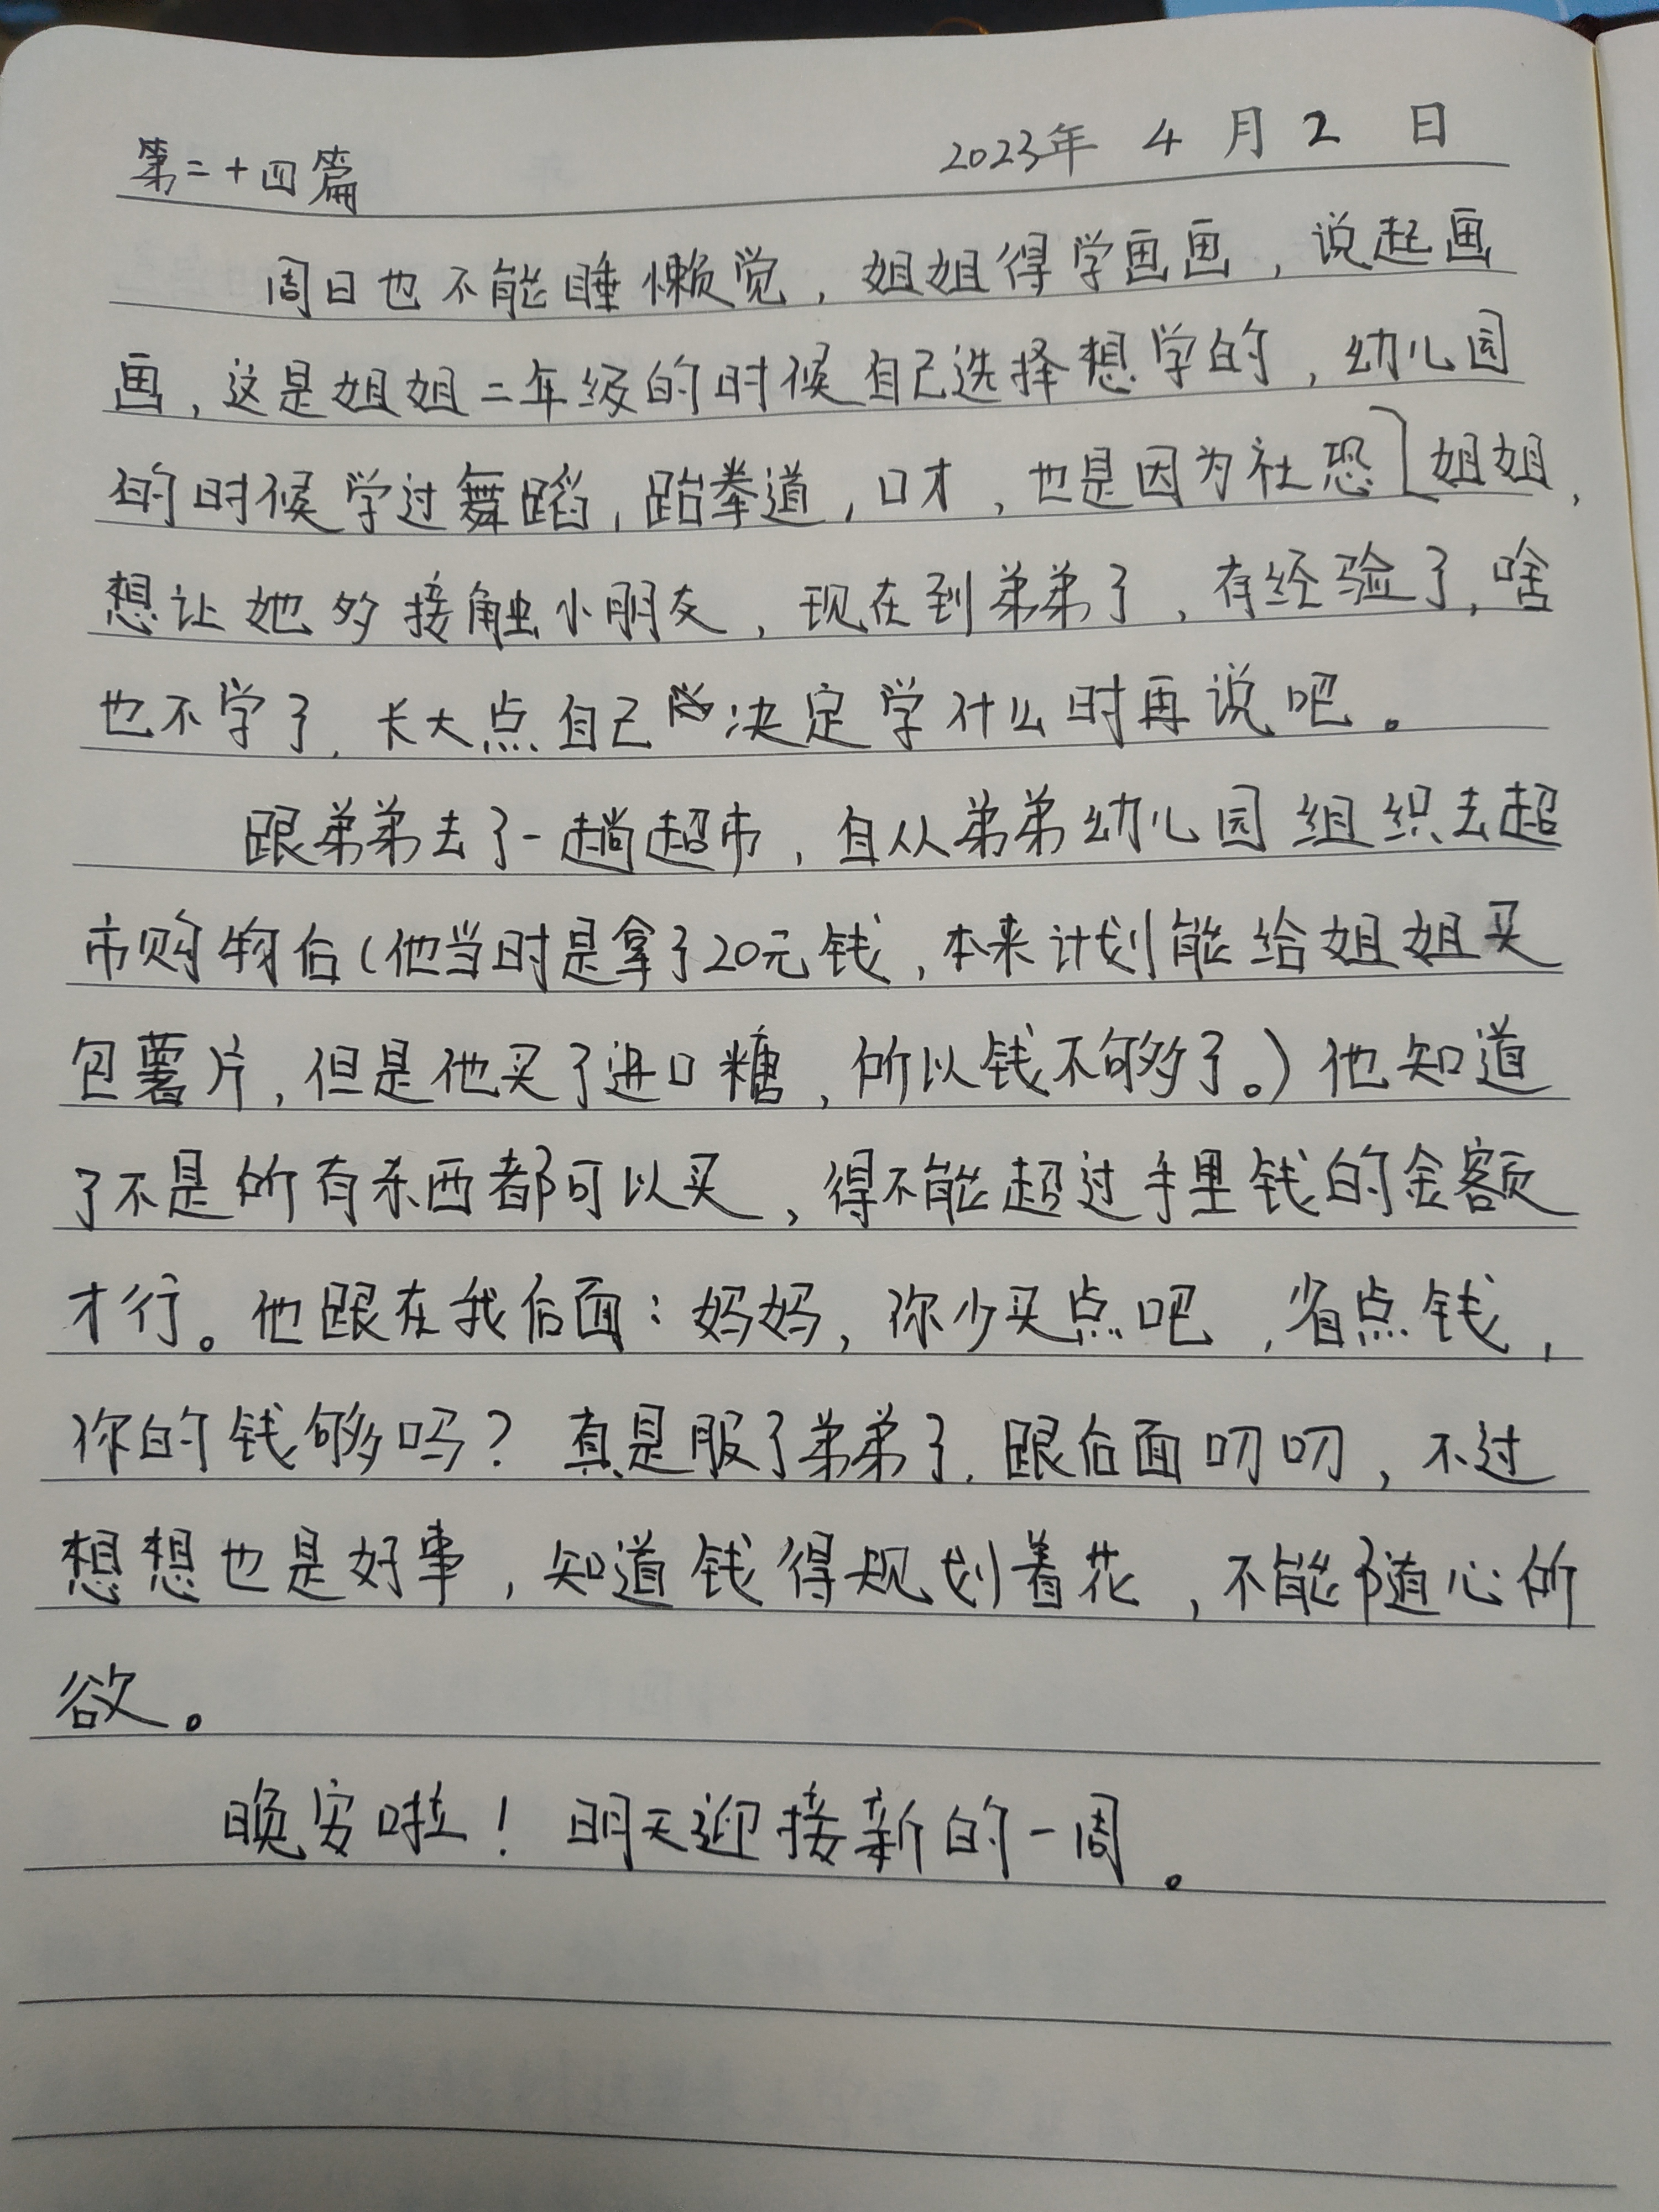 第二十四篇 2023年 4 月 2 日
周日也不能睡懒觉，姐姐得学画画，说起画
画，这是姐姐二年级的时候自己选择想学的，幼儿园
的时候学过舞蹈，跆拳道，口才，也是因为社恐]姐姐，
想让她多接触小朋友，现在到弟弟了，有经验了，啥
也不学了，长大点自己决定学什么时再说吧。
跟弟弟去了一趟超市，自从弟弟幼儿园组织去超
市购物后（他当时是拿了20元钱，本来计划能给姐姐买
包薯片，但是他买了进口糖，所以钱不够了。）他知道
了不是所有东西都可以买，得不能超过手里钱的金额
才行。他跟在我后面：妈妈，你少买点吧，省点钱，
你的钱够吗？真是服了弟弟了，跟后面叨叨，不过
想想也是好事，知道钱得规划着花，不能随心所
欲。
晚安啦！明天迎接新的一周。